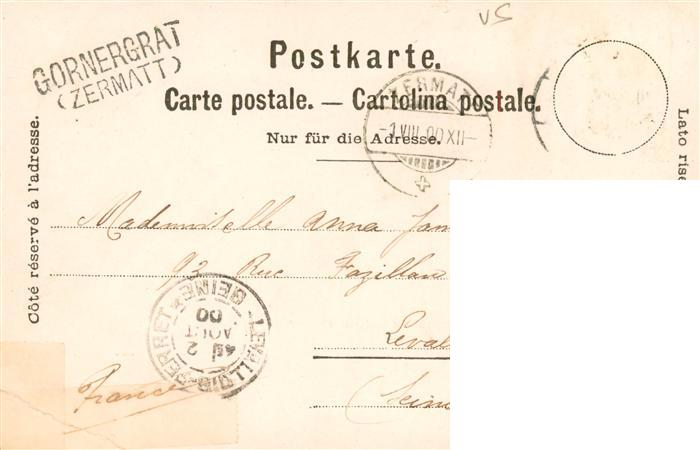 vs
GORNERGRAT
(ZERMATT)
Postkarte.
Carte postale. — Cartolina postale.
Nur für die Adresse.
ZERMATT
-1.VIII.00.XII-
Côté réservé à l'adresse.
Lato rise
Mademoiselle Anna Jam
92 Rue Fazillau
Leval
(Sein
France
LEVALLOIS-PERRET * SEINE
2
AOUT
00